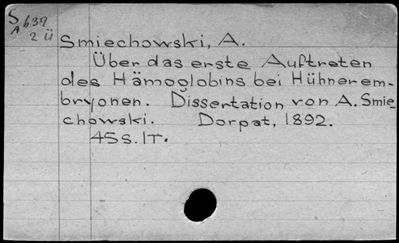 S
A 637
2 ü
Smiechowski, A.
Über das erste Auftreten
des Hämoglobins bei Hühnerem-
bryonen. Dissertation von A. Smie
chowski. Dorpat, 1892.
45 S. 1T.